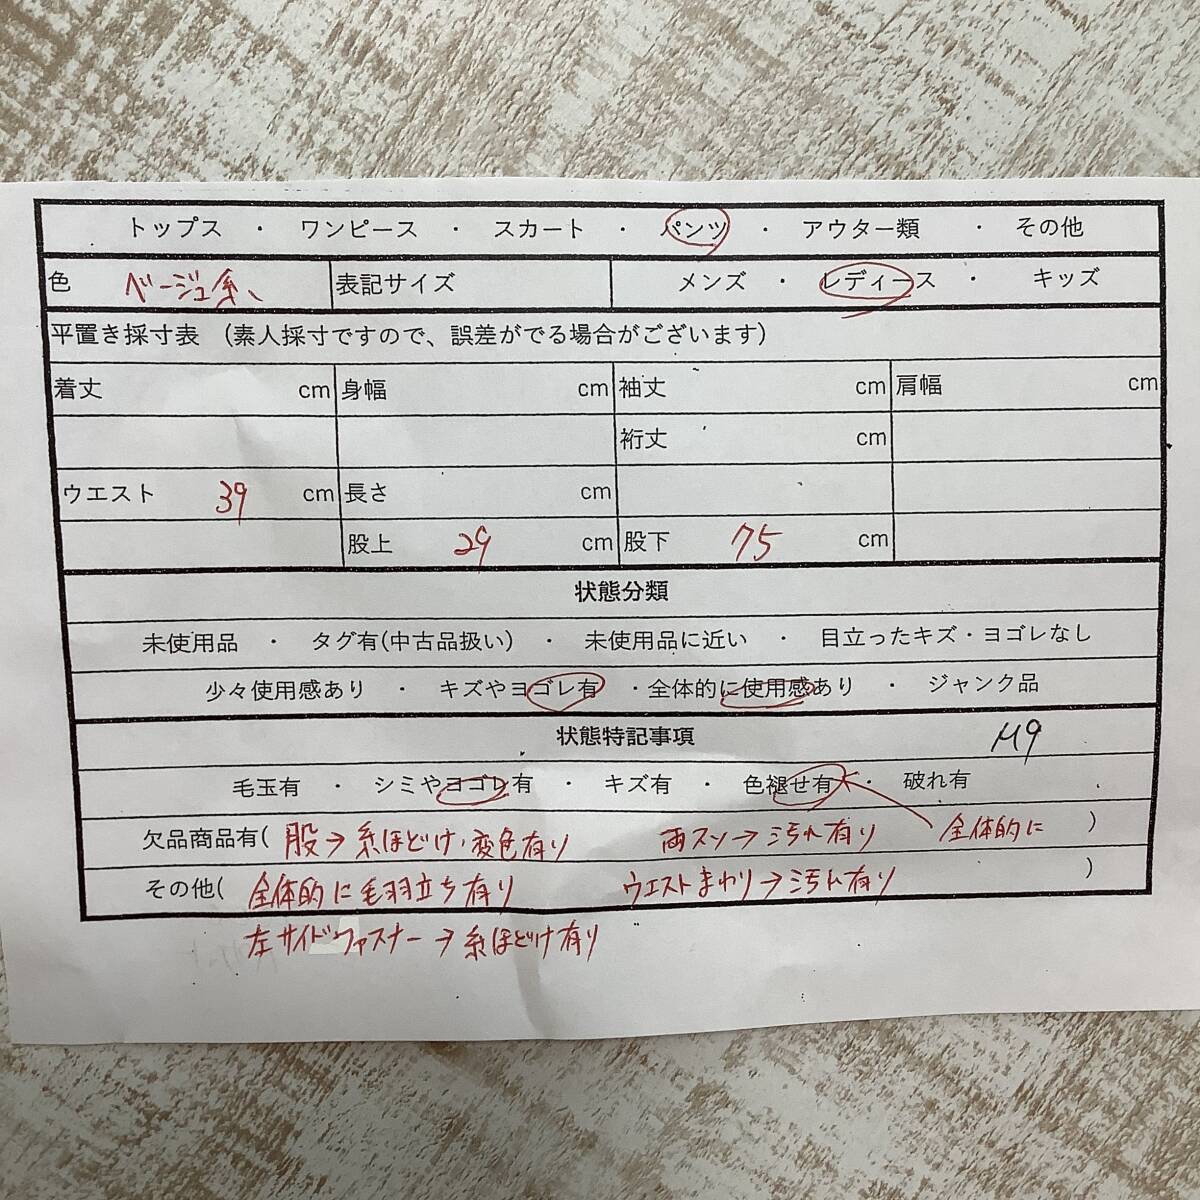 トップス ・ ワンピース ・ スカート ・ パンツ ・ アウター類 ・ その他
色 ベージュ系 表記サイズ メンズ ・ レディース ・ キッズ
平置き採寸表 (素人採寸ですので、誤差がでる場合がございます)
着丈 cm 身幅 cm 袖丈 cm 肩幅 cm
裄丈 cm
ウエスト 39 cm 長さ cm
股上 29 cm 股下 75 cm
状態分類
未使用品 ・ タグ有(中古品扱い) ・ 未使用品に近い ・ 目立ったキズ・ヨゴレなし
少々使用感あり ・ キズやヨゴレ有 ・全体的に使用感あり ・ ジャンク品
状態特記事項 M9
毛玉有 ・ シミやヨゴレ有 ・ キズ有 ・ 色褪せ有 ・ 破れ有
欠品商品有( 股→糸ほどけ・変色有り 両スソ→汚れ有り 全体的に )
その他( 全体的に毛羽立ち有り ウエストまわり→汚れ有り )
左サイドファスナー→糸ほどけ有り